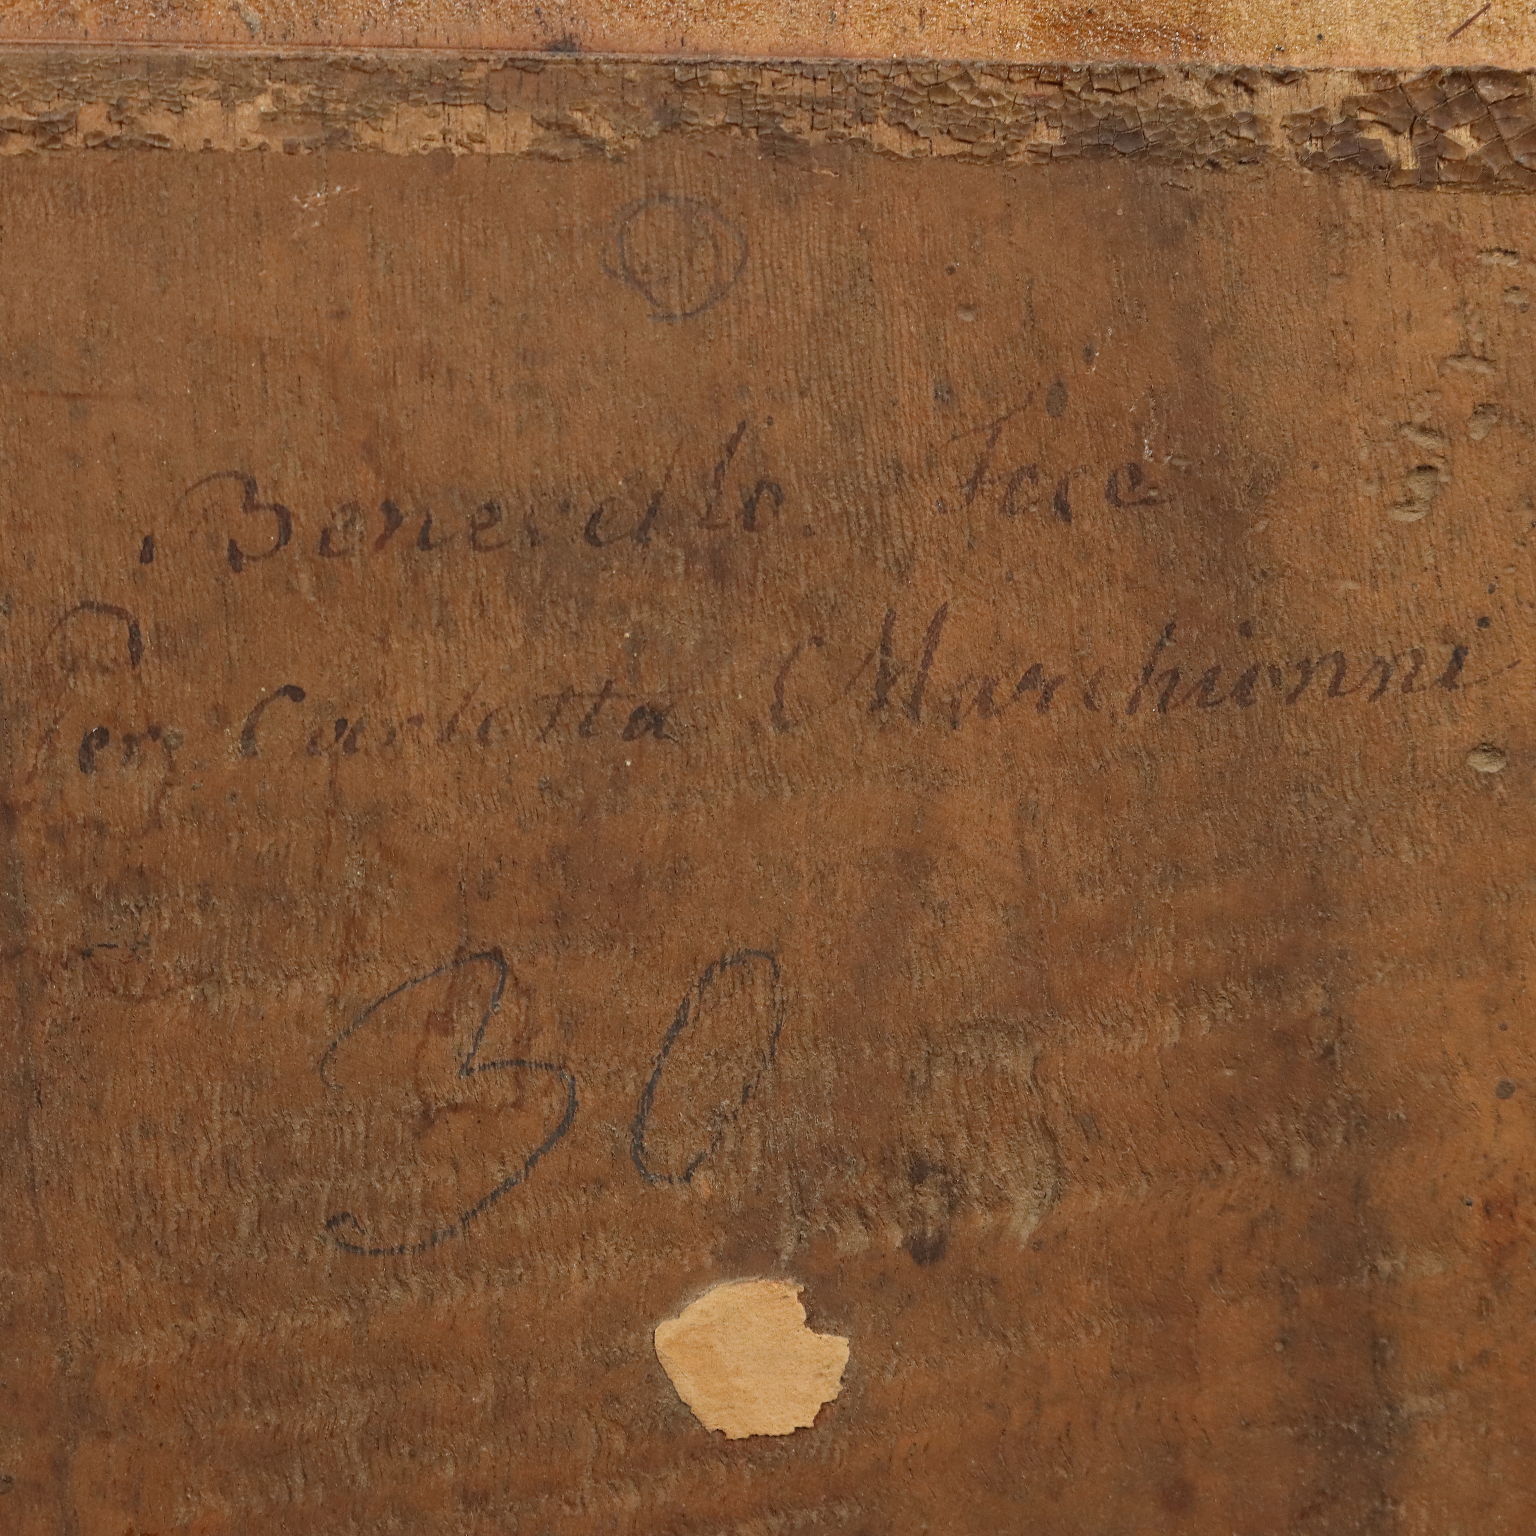 Benedetto. Fece
Per Carlotta Marchionni
30